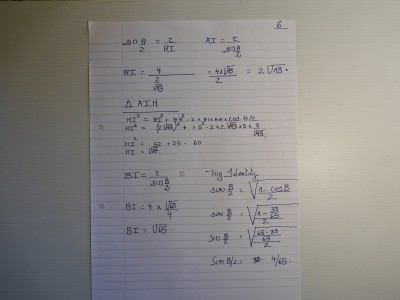 6
sin A/2 = r/AI   AI = r/sin A/2
AI = 4/(2/√13) = 4x√13/2 = 2√13.
Δ AIH
HI² = (2√13)² + 5² - 2x2√13 x5x 3/√13
HI² = 52 + 25 - 60
HI = √17
BI = r/sin B/2   Trig Identity
sin B/2 = √(1 - cos B/2)
BI = 4 x √65/4   sin B/2 = √(1 - 33/65/2)
BI = √65   sin B/2 = √(65 - 33/65/2)
sin B/2 = 4/√65.